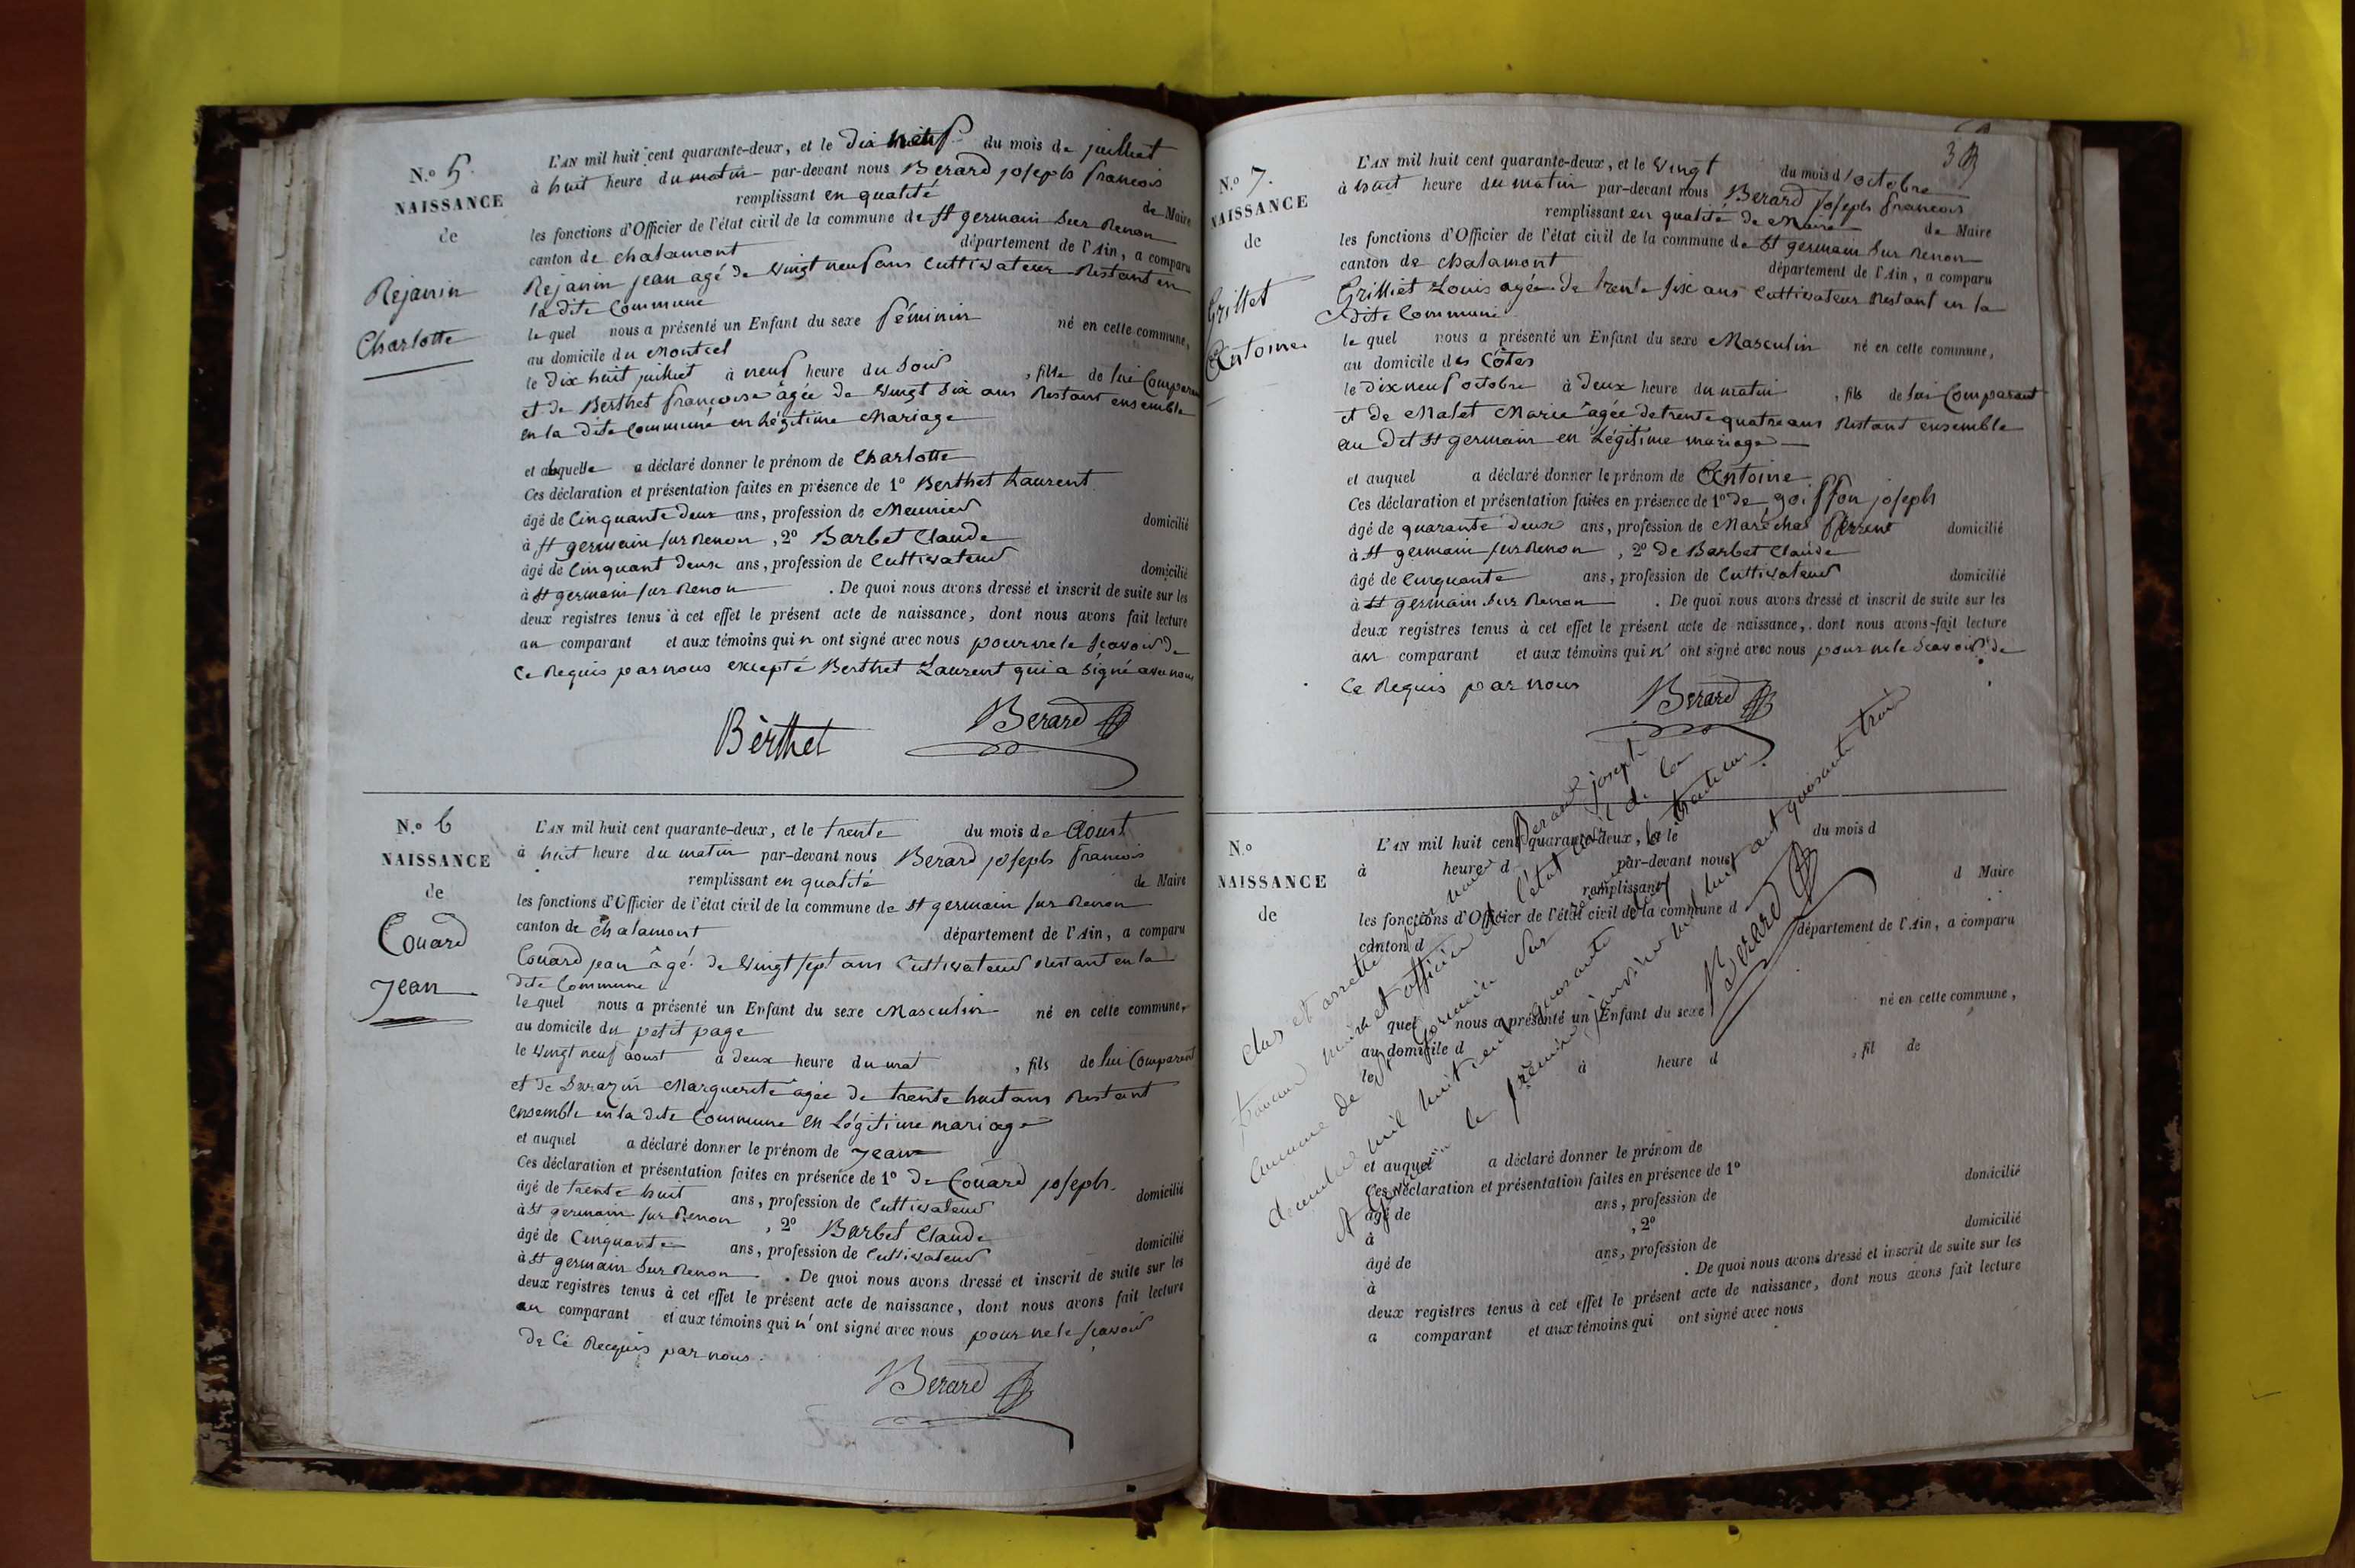 N.o 5.
NAISSANCE
de
Rejanin
Charlotte
L'AN mil huit cent quarante-deux, et le dix neuf du mois de juillet
à huit heure du matin par-devant nous Berard joseph francois
remplissant en qualité de Maire
les fonctions d'Officier de l'état civil de la commune de St germain Sur Renon
canton de chalamont département de l'Ain, a comparu
Rejanin jean agé de vingt neuf ans Cultivateur Restant en
la dite Commune
le quel nous a présenté un Enfant du sexe féminin né en cette commune,
au domicile du Montcel
le dix huit juillet à neuf heure du Soir , fille de lui Comparant
et de Berthet françoise âgée de vingt six ans Restant ensemble
en la dite Commune en Légitime Mariage
et a laquelle a déclaré donner le prénom de Charlotte
Ces déclaration et présentation faites en présence de 1º Berthet Laurent
âgé de Cinquante deux ans, profession de Meunier domicilié
à St germain sur Renon , 2º Barbet Claude
âgé de Cinquant deux ans, profession de Cultivateur domicilié
à St germain sur Renon . De quoi nous avons dressé et inscrit de suite sur les
deux registres tenus à cet effet le présent acte de naissance, dont nous avons fait lecture
au comparant et aux témoins qui n ont signé avec nous pour ne le scavoir de
Ce Requis par nous excepté Berthet Laurent qui a signé avec nous
Bèrthet Berard
N.o 6
NAISSANCE
de
Couard
Jean
L'AN mil huit cent quarante-deux, et le trente du mois de Aoust
à huit heure du matin par-devant nous Berard joseph francois
remplissant en qualité de Maire
les fonctions d'Officier de l'état civil de la commune de St germain sur Renon
canton de chalamont département de l'Ain, a comparu
Couard jean âgé de vingt sept ans Cultivateur Restant en la
dite Commune
le quel nous a présenté un Enfant du sexe Masculin né en cette commune,
au domicile du petit page
le vingt neuf aoust à deux heure du mat , fils de lui Comparent
et de Sarazin Marguerite âgée de trente huit ans Restant
ensemble en la dite Commune en Légitime mariage
et auquel a déclaré donner le prénom de Jean
Ces déclaration et présentation faites en présence de 1º de Couard joseph.
âgé de trente huit ans, profession de Cultivateur domicilié
à St germain sur Renon , 2º Barbet Claude
âgé de Cinquante ans, profession de Cultivateur domicilié
à St germain Sur Renon . De quoi nous avons dressé et inscrit de suite sur les
deux registres tenus à cet effet le présent acte de naissance, dont nous avons fait lecture
au comparant et aux témoins qui n' ont signé avec nous pour ne le scavoir
de Cé Recquis par nous.
Berard
N.o 7.
NAISSANCE
de
Grillet
Antoine
L'AN mil huit cent quarante-deux, et le vingt du mois d'octobre
à huit heure du matin par-devant nous Berard joseph francois
remplissant en qualité de Maire de Maire
les fonctions d'Officier de l'état civil de la commune de St germain Sur Renon
canton de chalamont département de l'Ain, a comparu
Grilliet Louis agée de trente six ans Cultivateur Restant en la
dite Commune
le quel nous a présenté un Enfant du sexe Masculin né en cette commune,
au domicile des Côtes
le dix neuf octobre à deux heure du matin , fils de lui Comparant
et de Malet Marie âgée de trente quatre ans Restant ensemble
au dit St germain en Légitime mariage
et auquel a déclaré donner le prénom de Antoine
Ces déclaration et présentation faites en présence de 1º de goiffon joseph
âgé de quarante deux ans, profession de Maréchal domicilié
à St germain sur Renon , 2º de Barbet Claude
âgé de Cinquante ans, profession de Cultivateur domicilié
à St germain Sur Renon . De quoi nous avons dressé et inscrit de suite sur les
deux registres tenus à cet effet le présent acte de naissance, dont nous avons fait lecture
au comparant et aux témoins qui n' ont signé avec nous pour ne le scavoir de
Ce Requis par nous
Berard
N.o
NAISSANCE
de
L'AN mil huit cent quarante-deux, et le du mois d
à heure d par-devant nous
remplissant d Maire
les fonctions d'Officier de l'état civil de la commune d
canton d département de l'Ain, a comparu
quel nous a présenté un Enfant du sexe né en cette commune,
au domicile d
le à heure d , fil de
et auquel a déclaré donner le prénom de
Ces déclaration et présentation faites en présence de 1º
âgé de ans, profession de domicilié
à , 2º
âgé de ans, profession de domicilié
à . De quoi nous avons dressé et inscrit de suite sur les
deux registres tenus à cet effet le présent acte de naissance, dont nous avons fait lecture
a comparant et aux témoins qui ont signé avec nous
Clos et arretté par nous Berard joseph
francois maire et officier de l'état civil de la
Commune de St germain Sur renon le trente un
decembre mil huit cent quarante deux
St germain le premier janvier mil huit cent quarante trois
Berard